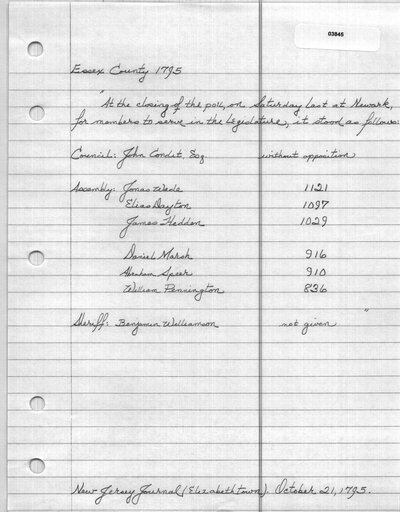 03845
Essex County 1795
"At the closing of the poll, on Saturday last at Newark,
for members to serve in the Legislature, it stood as follows:
Council: John Condit, Esq. without opposition
Assembly: Jonas Wade 1121
Elias Dayton 1097
James Hedden 1029
Daniel Marsh 916
Abraham Speer 910
William Pennington 836
Sheriff: Benjamin Williamson not given "
New Jersey Journal (Elizabethtown). October 21, 1795.